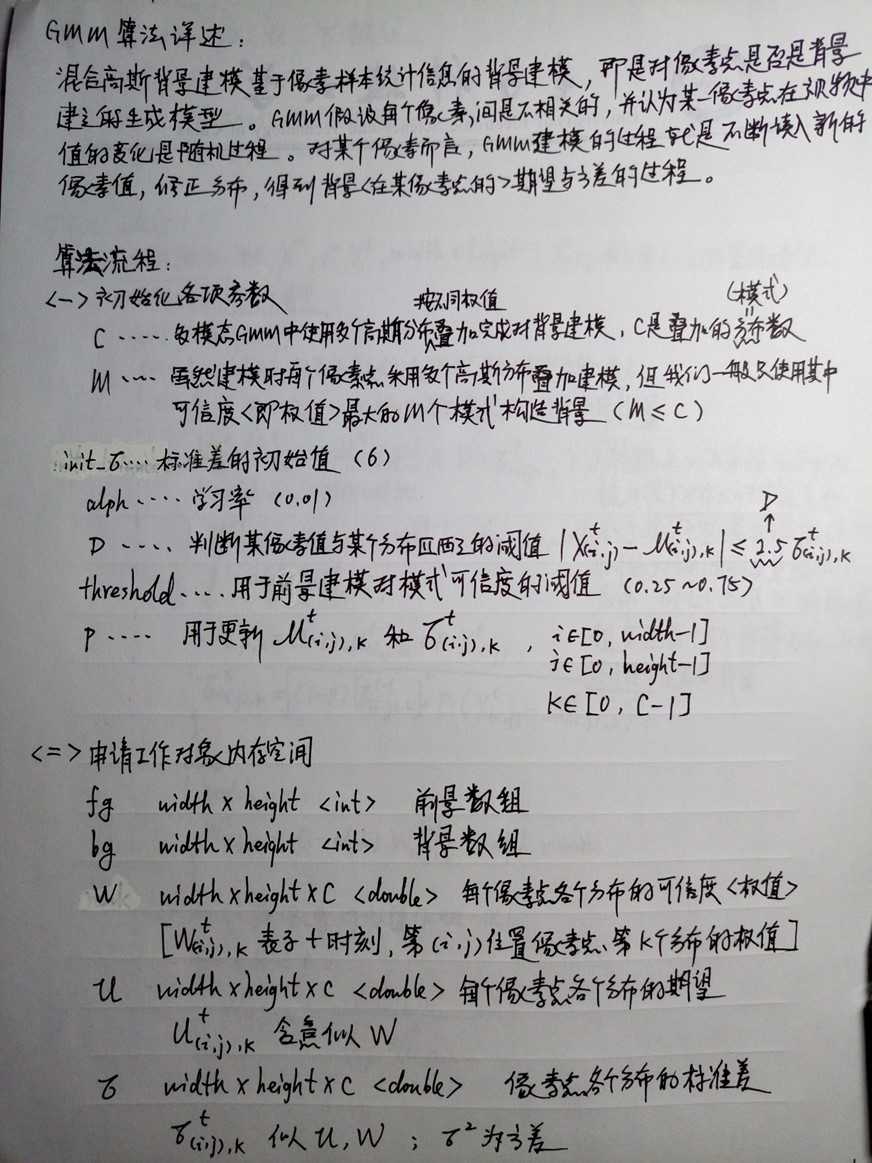 GMM 算法详述：
混合高斯背景建模基于像素样本统计信息的背景建模，即是对像素点是否是背景
建立的生成模型。GMM假设每个像素间是不相关的，并认为某一像素点在视频中
值的变化是随机过程。对某个像素而言，GMM建模的过程就是不断填入新的
像素值，修正分布，得到背景<在某像素点的>期望与方差的过程。
算法流程：
<一> 初始化各项参数
按不同权值
(模式)
C ····· 多模态GMM中使用多个高斯分布叠加完成对背景建模，C是叠加的分布数
M ···· 虽然建模时每个像素点采用多个高斯分布叠加建模，但我们一般只使用其中
可信度<即权值>最大的M个模式构造背景 (M ≤ C)
init_σ···· 标准差的初始值 (6)
alph ····· 学习率 (0.01)
D
D ····· 判断某像素值与某个分布匹配的阈值 |X^t_(i,j) - μ^t_(i,j),k| ≤ 2.5 σ^t_(i,j),k
threshold····· 用于前景建模对模式可信度的阈值 (0.25~0.75)
P ···· 用于更新 μ^t_(i,j),k 和 σ^t_(i,j),k , i∈[0, width-1]
j∈[0, height-1]
K∈[0, C-1]
<二> 申请工作对象内存空间
fg width × height <int> 前景数组
bg width × height <int> 背景数组
W width × height × C <double> 每个像素点各个分布的可信度<权值>
[W^t_(i,j),k 表示 t 时刻，第(i,j)位置像素点、第K个分布的权值]
U width × height × C <double> 每个像素点各个分布的期望
U^t_(i,j),k 含意似 W
σ width × height × C <double> 像素点各个分布的标准差
σ^t_(i,j),k 似 U, W ; σ² 为方差